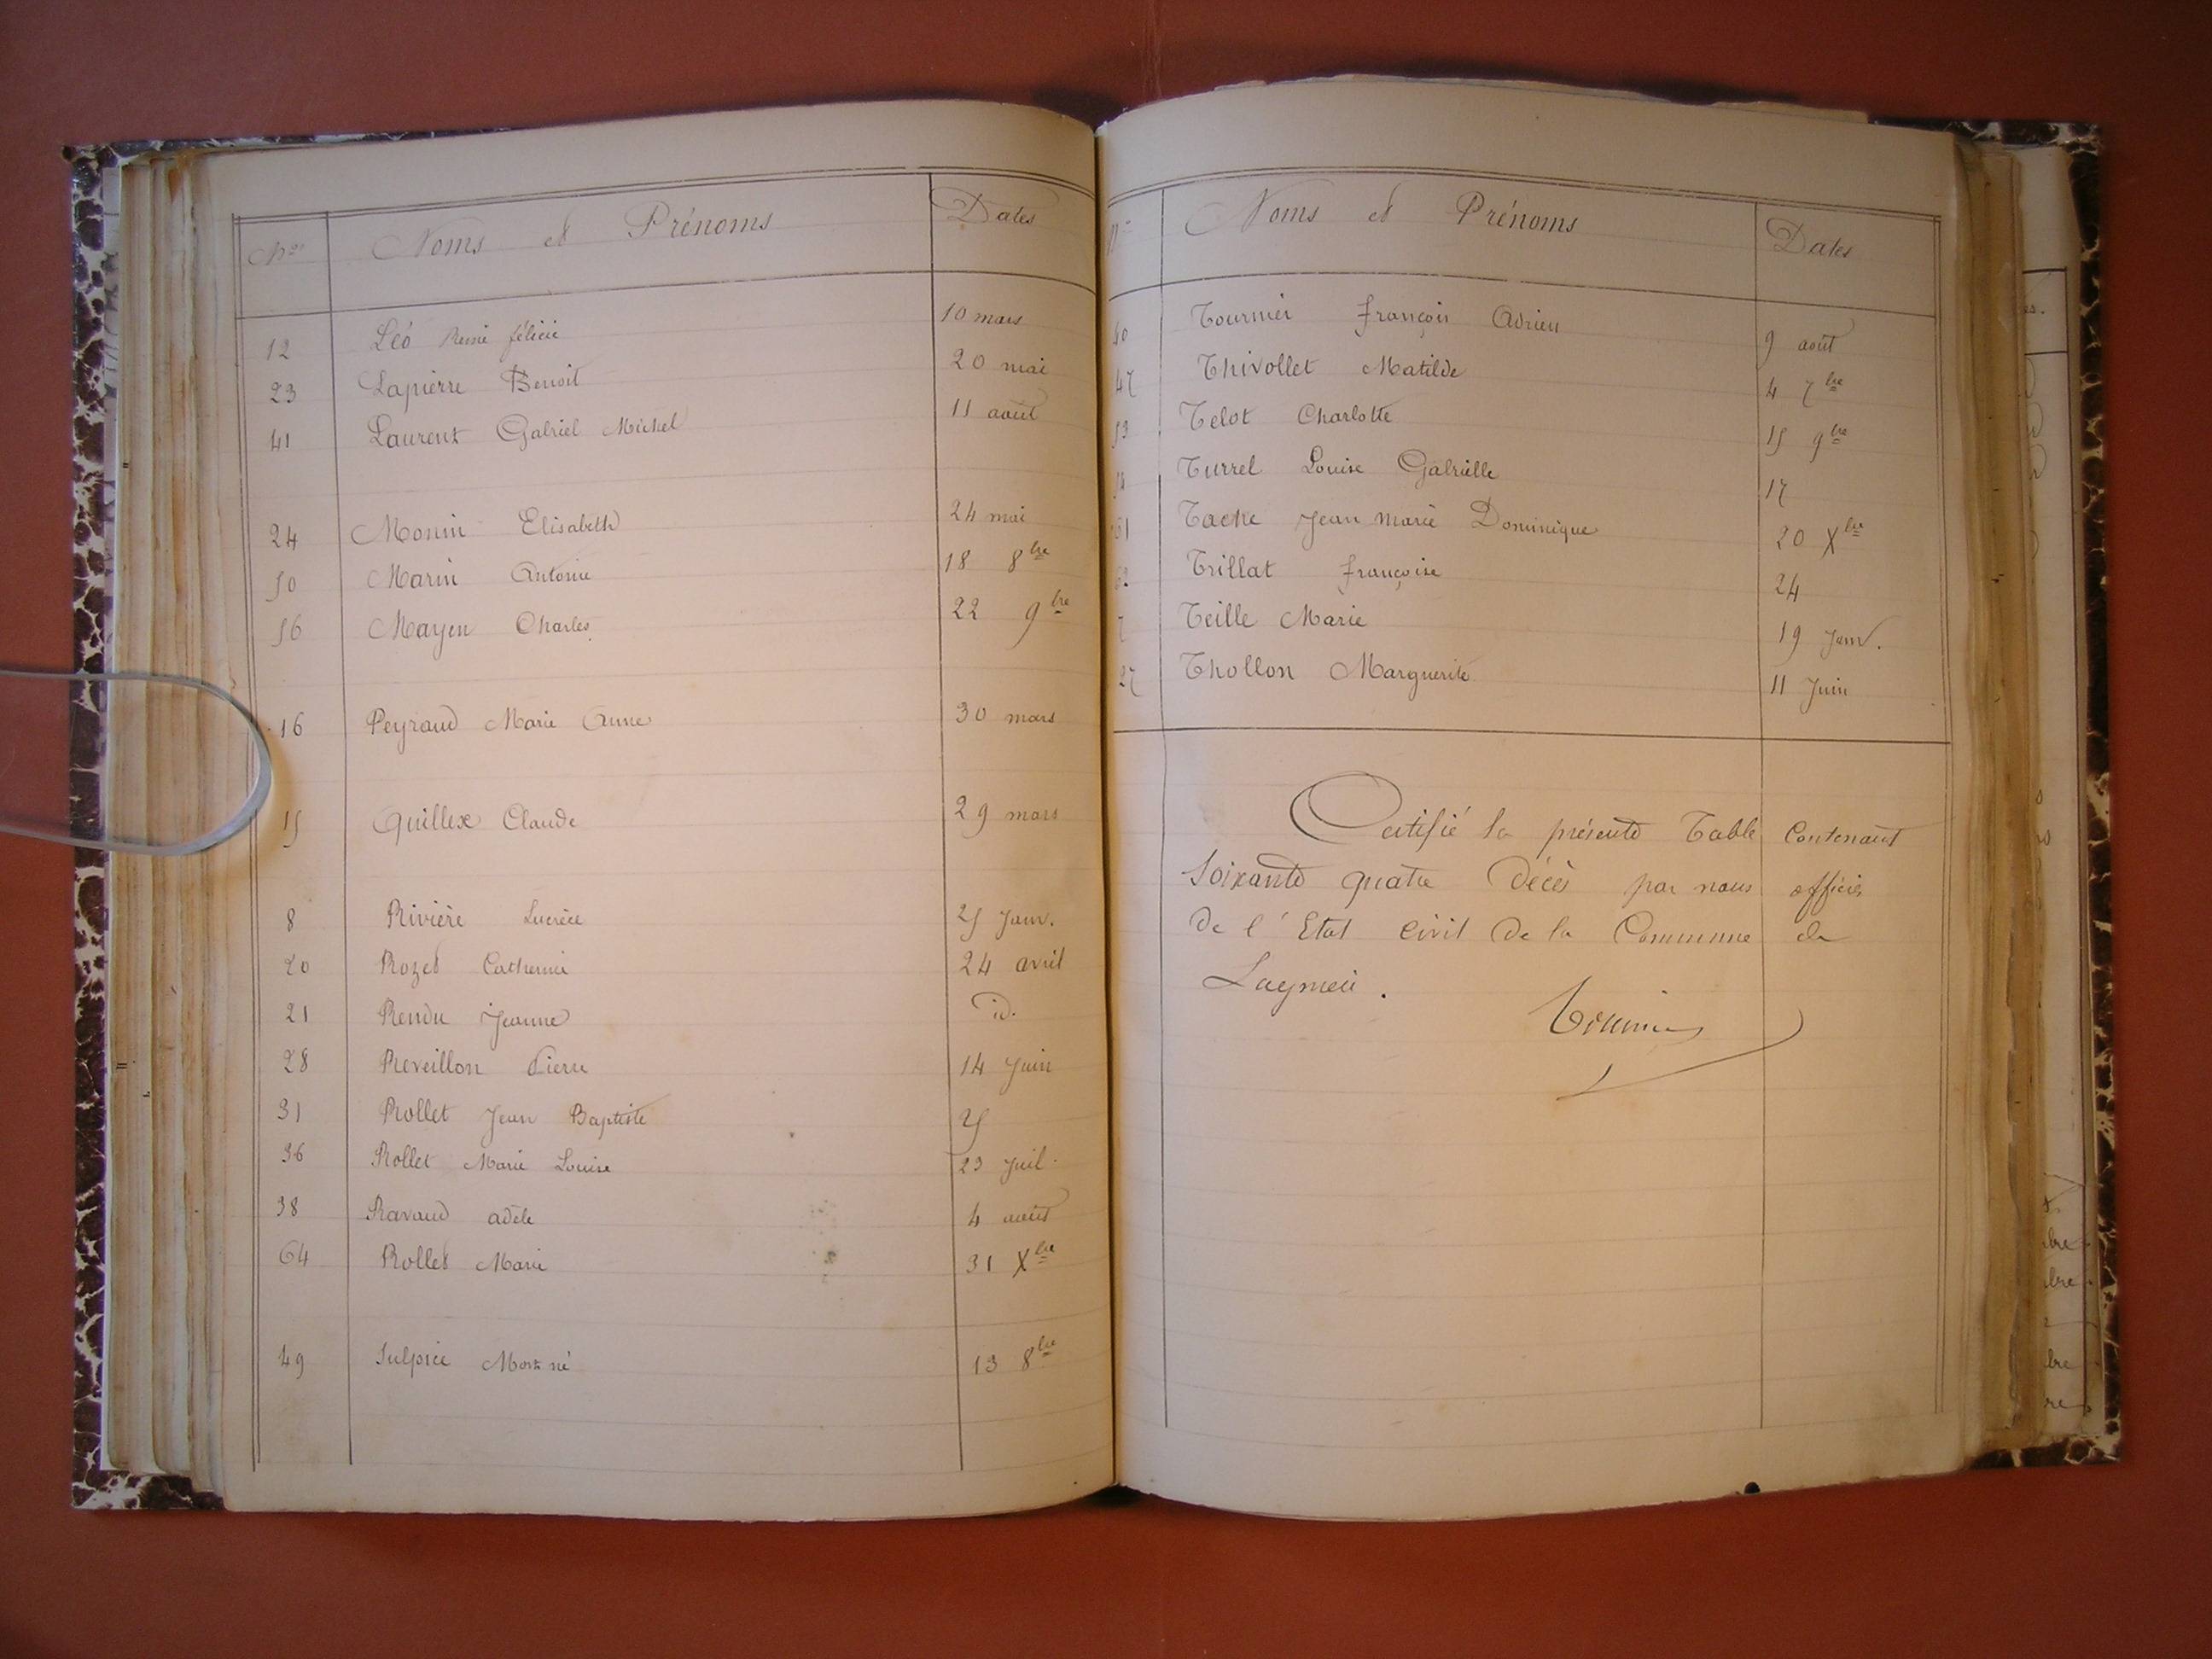 Nos Noms et Prénoms Dates
12 Léó René félicie 10 mars
23 Lapierre Benoit 20 mai
41 Laurent Gabriel Michel 11 août
24 Monin Elisabeth 24 mai
50 Marin Antoine 18 8bre
56 Mayen Charles 22 9bre
16 Peyraud Marie Anne 30 mars
15 Quillex Claude 29 mars
8 Rivière Lucrèce 25 Janv.
20 Rozet Catherine 24 avril
21 Rendu Jeanne id.
28 Reveillon Pierre 14 Juin
31 Rollet Jean Baptiste 25
36 Rollet Marie Louise 23 Juil.
38 Ravaud adèle 4 août
64 Rollet Marie 31 Xbre
49 Sulpice Mort né 13 8bre
Noms et Prénoms Dates
40 Tournier françois Adrien 9 août
47 Thivollet Matilde 4 7bre
53 Telot Charlotte 15 9bre
54 Turrel Louise Gabrielle 17
61 Tache Jean Marie Dominique 20 Xbre
62 Trillat françoise 24
7 Teille Marie 19 Janv.
27 Thollon Marguerite 11 Juin
Certifié la présente Table Contenant
Soixante quatre Décès par nous officier
de l'Etat Civil de la Commune de
Lagnieu.